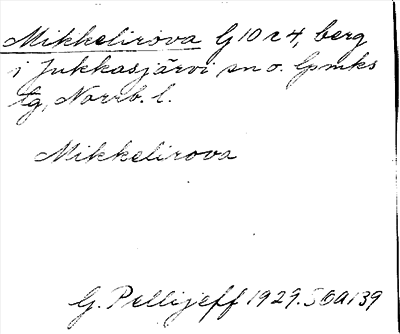 Mikkelirova G 10 c 4, berg
i Jukkasjärvi sn o. lpmks
tg, Norrb. l.
Mikkelirova
G. Pellijeff 1929. S6a139